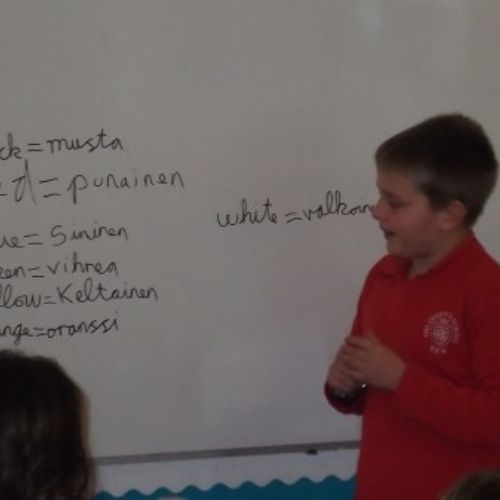 ck = musta
ed = punainen
ue = Sininen
een = vihrea
llow = Keltainen
nge = oranssi
white = valkoin